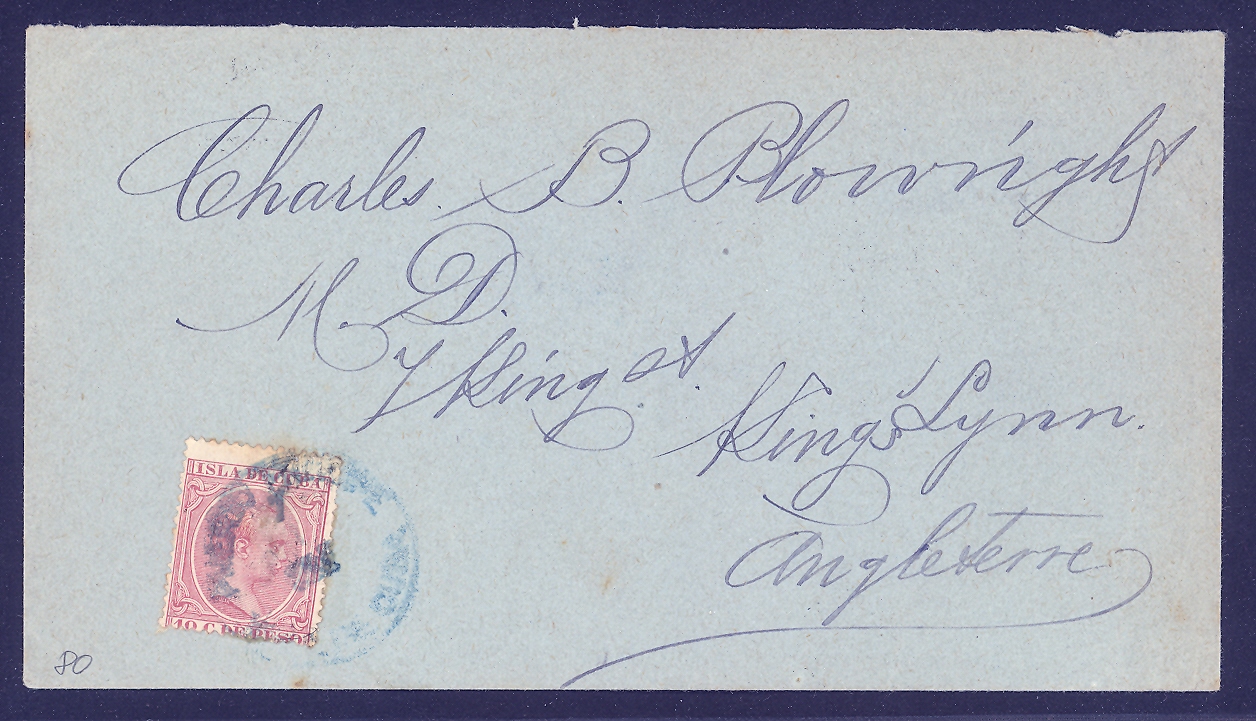 Charles. B. Plowright
M. D.
7 King st.
King's Lynn.
Angleterre
ISLA DE CUBA
10 C. DE PESO
80